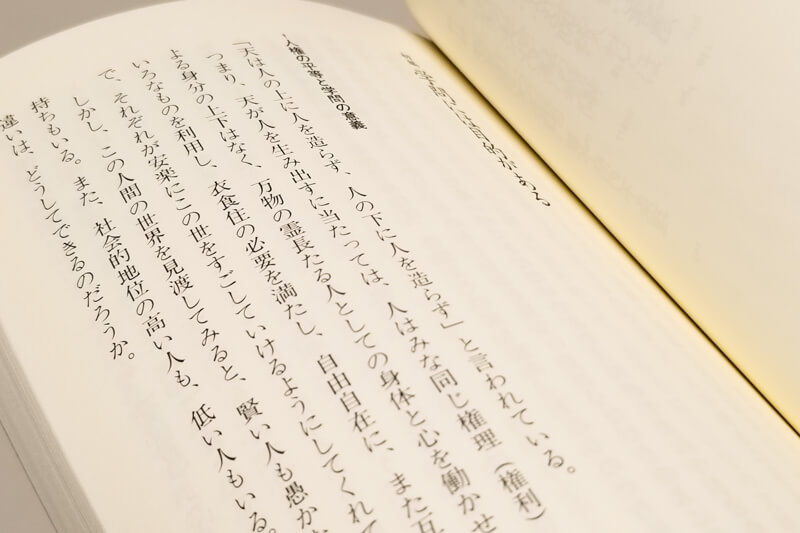 学問には目的がある
人権の平等と学問の意義
「天は人の上に人を造らず、人の下に人を造らず」と言われている。
つまり、天が人を生み出すに当たっては、人はみな同じ権理（権利）
よる身分の上下はなく、万物の霊長たる人としての身体と心を働かせ
いろなものを利用し、衣食住の必要を満たし、自由自在に、また互
で、それぞれが安楽にこの世をすごしていけるようにしてくれて
しかし、この人間の世界を見渡してみると、賢い人も愚か
持ちもいる。また、社会的地位の高い人も、低い人もいる。
違いは、どうしてできるのだろうか。